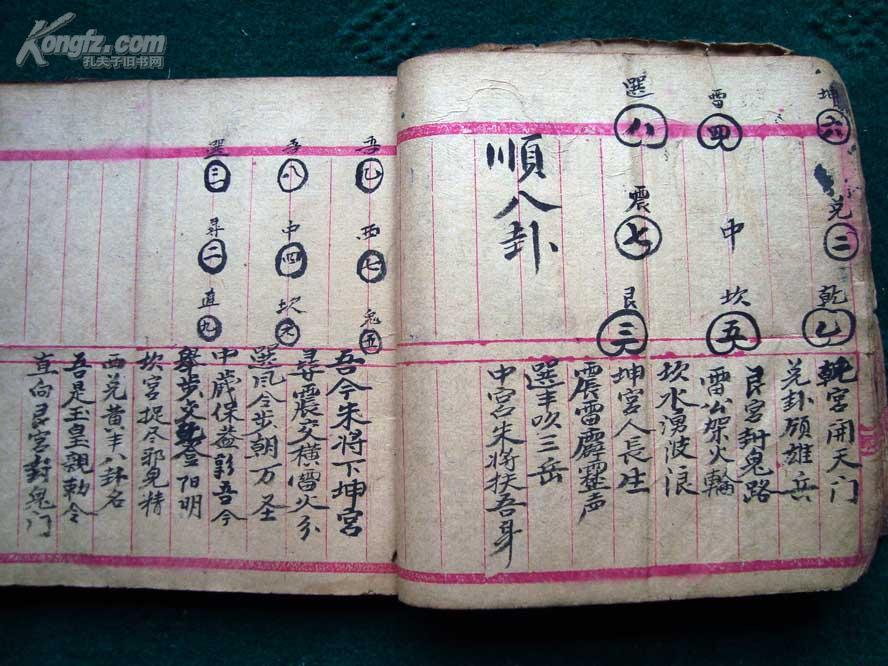 Kongfz.com
孔夫子旧书网
坤 六 兑 二 乾 乙
雷 四 中 坎 五
選 八 震 七 艮 三
順八卦
乾宮開天门
兑卦领雄兵
艮宮封鬼路
雷公架火輪
坎水湧波浪
坤宮人長生
震雷霹靂声
選丰吹三岳
中宮朱将扶吾身
吾 乙 西 七 鬼 五
吾 八 中 四 坎 六
選 三 尋 二 直 九
吾今朱将下坤宮
尋震交横雷火分
選风今步朝万圣
中 保益 吾今
舉步交乾金阳明
坎宮捉尽邪鬼精
西兑黄丰八卦名
吾是玉皇親勅令
直向艮宮封鬼门